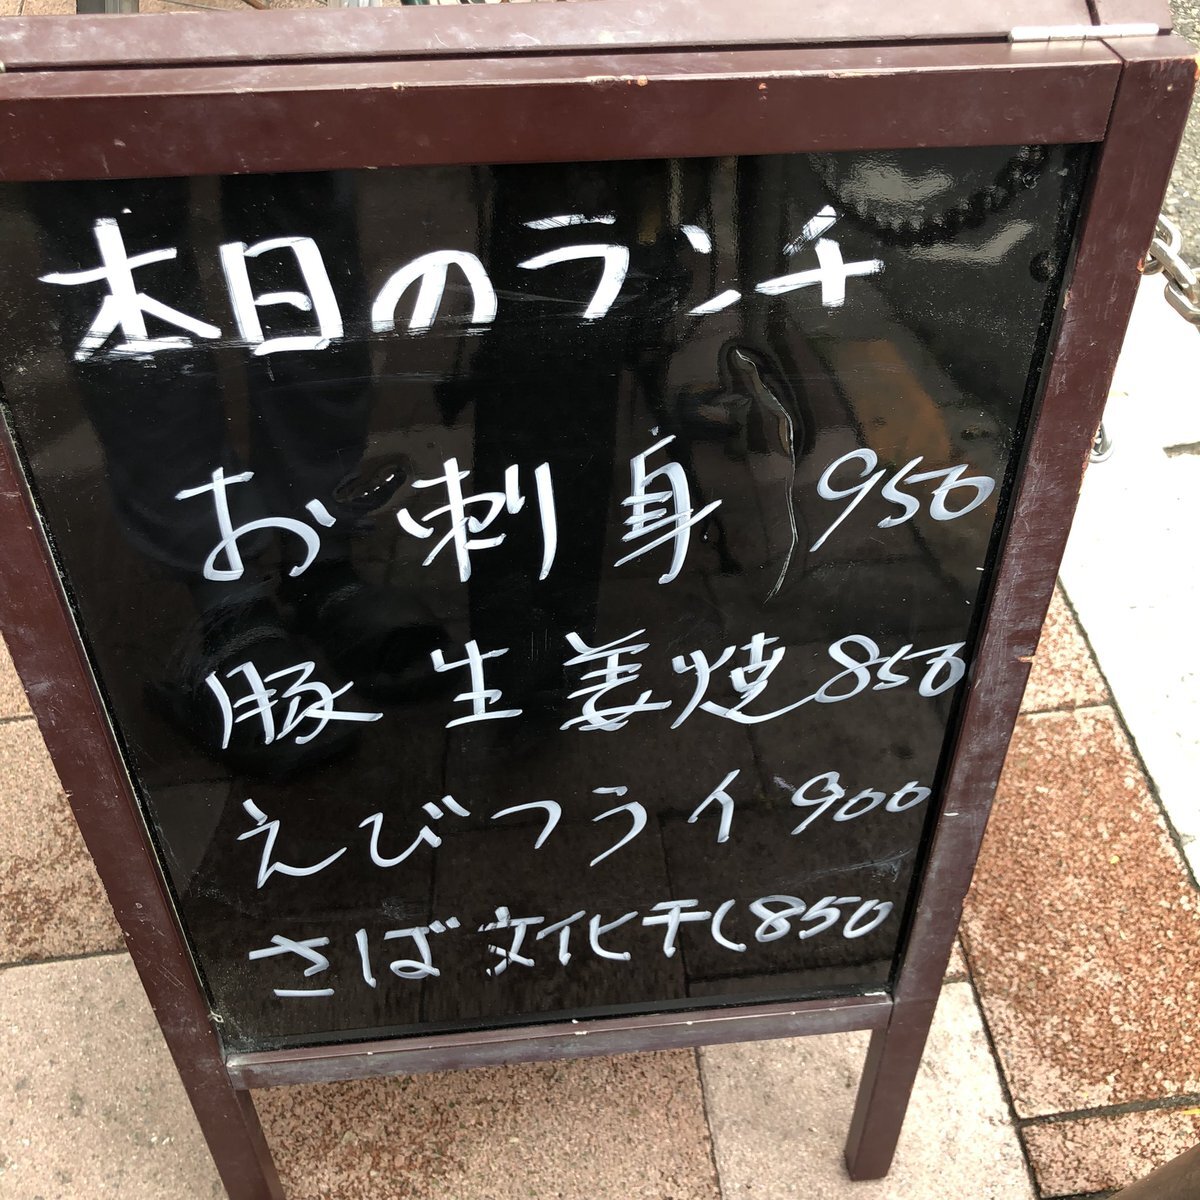 本日のランチ
お刺身 950
豚生姜焼 850
えびフライ 900
さば文化干し 850